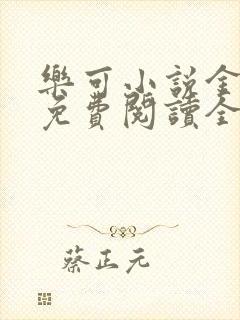 樂可小説全
免費閱讀全
蔡正元